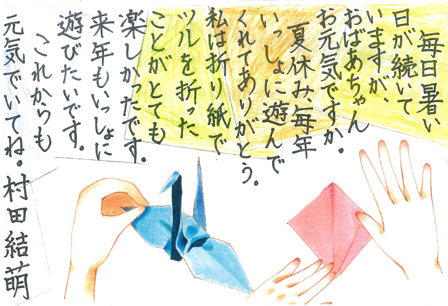 毎日暑い
日が続いて
いますが、
おばあちゃん
お元気ですか。
夏休み、毎年
いっしょに遊んで
くれてありがとう。
私は折り紙で
ツルを折った
ことがとても
楽しかったです。
来年もいっしょに
遊びたいです。
これからも
元気でいてね。村田結萌